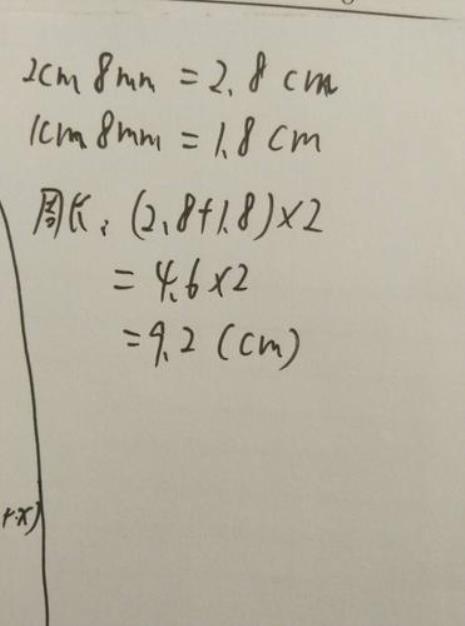 2cm 8mm = 2.8 cm
1cm 8mm = 1.8 cm
周长: (2.8+1.8)×2
= 4.6×2
=9.2 (cm)
+x)